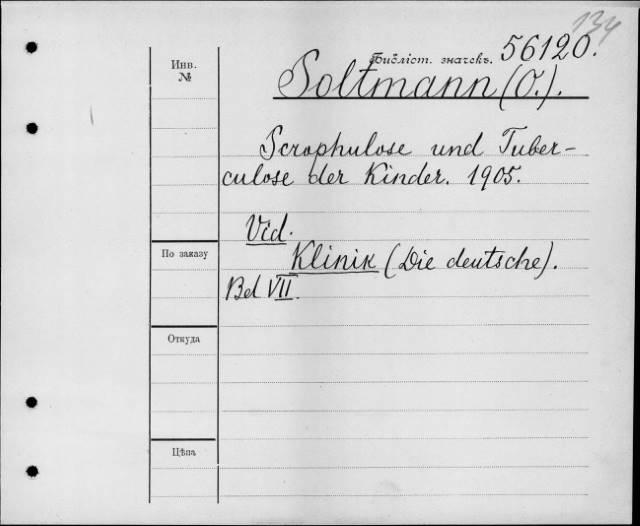 134
Библіот. значекъ. 56120.
Инв.
№
Soltmann (O.).
Scrophulose und Tuber-
culose der Kinder. 1905.
Vid.
По заказу
Klinik (Die deutsche).
Bd VII.
Откуда
Цѣна